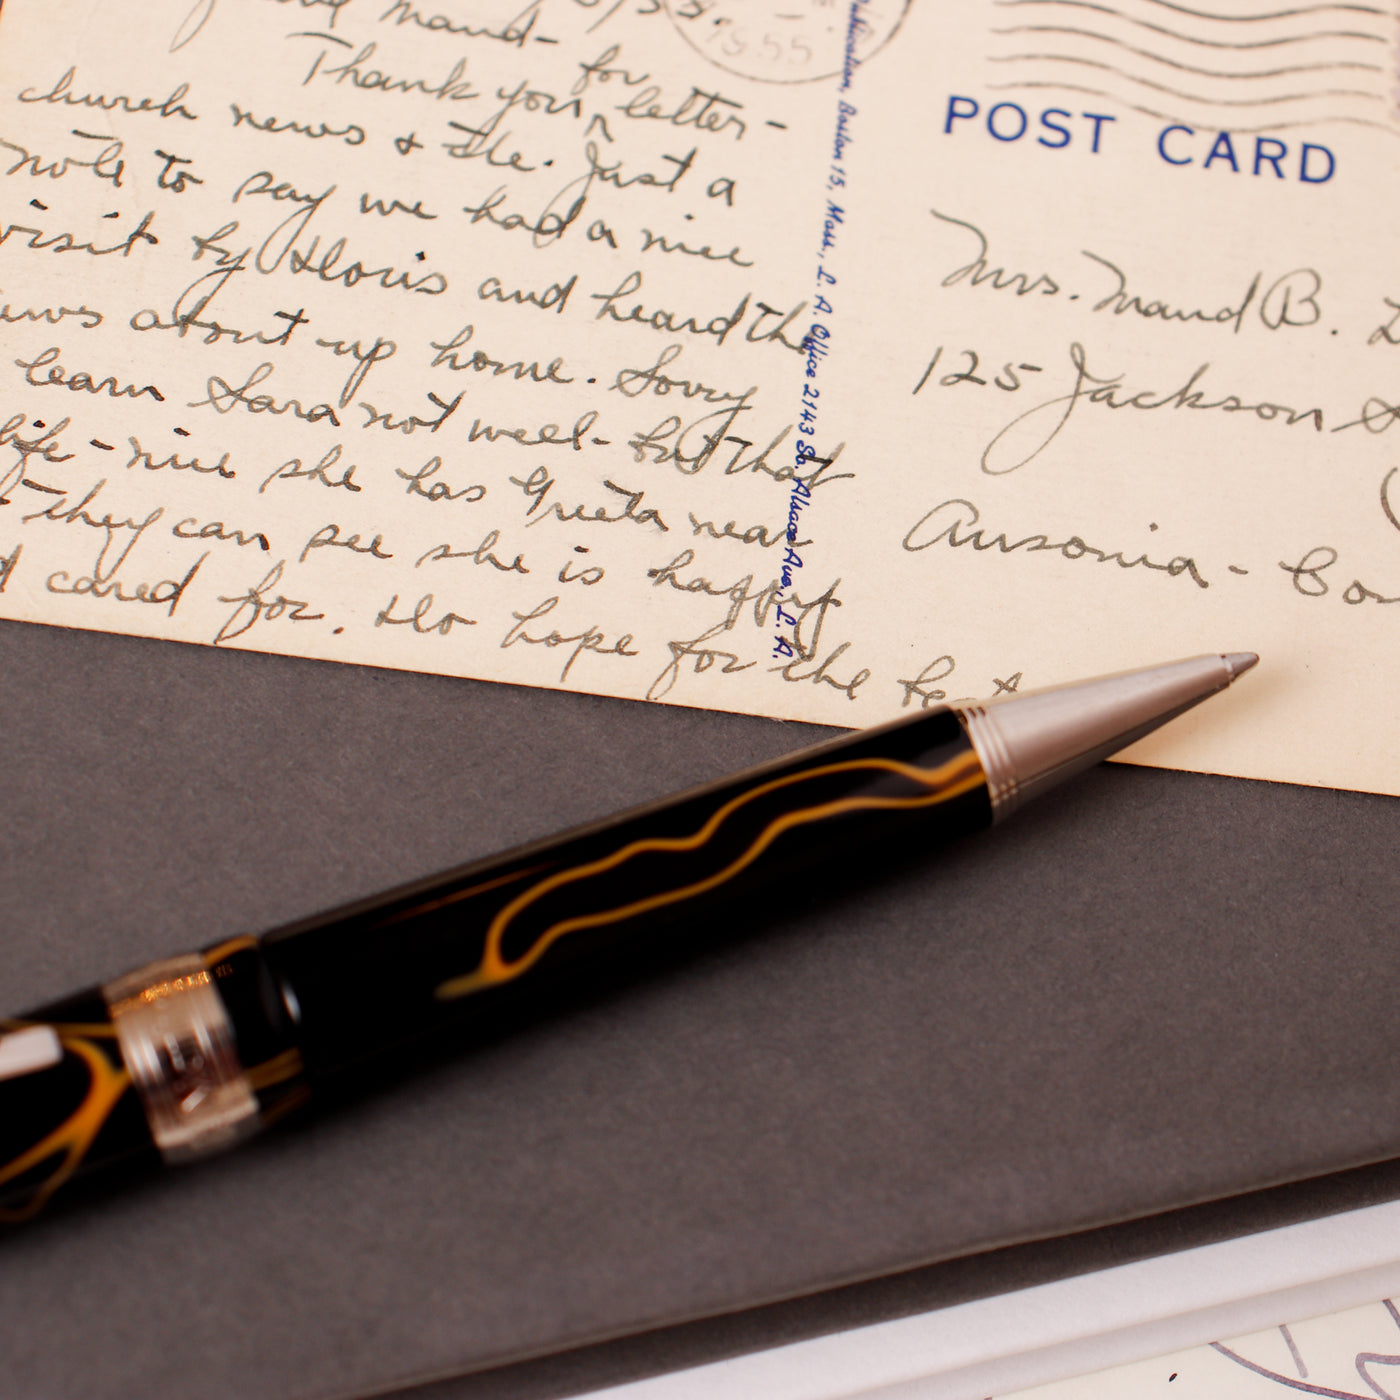 Maud-
1955
Thank you for letter-
church news & the. Just a
note to say we had a nice
visit by Doris and heard the
news about up home. Sorry
learn Sara not well- but that
life - nice she has Greeta near
they can see she is happy
cared for. Do hope for the best
Publication, Boston 15, Mass., L. A. Office 2143 So. Alsace Ave., L. A.
POST CARD
Mrs. Maud B.
125 Jackson
Ansonia -